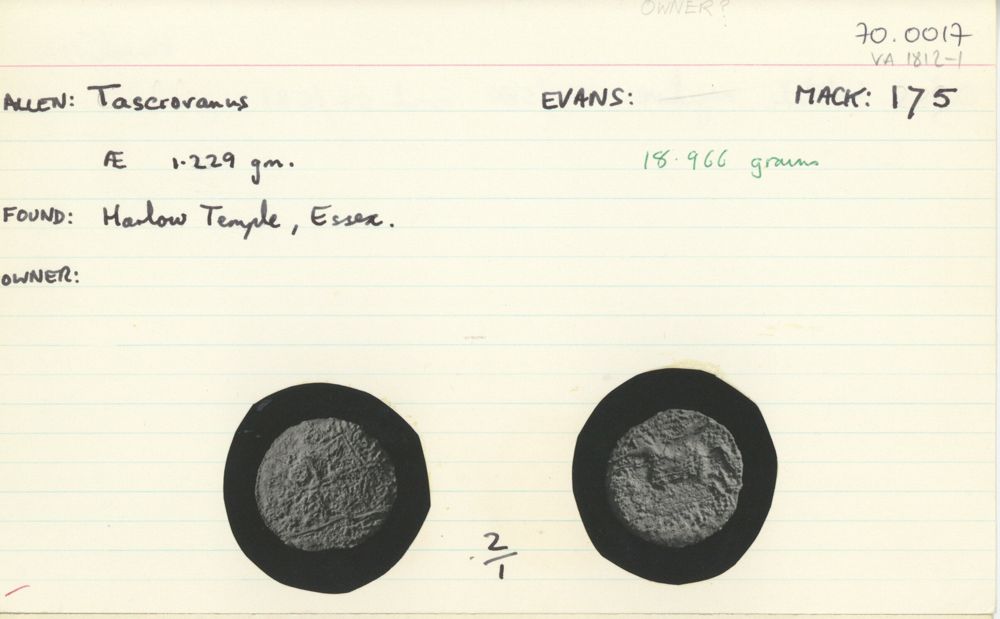 OWNER?
70.0017
VA 1812-1
ALLEN: Tasciovanus EVANS: — MACK: 175
Æ 1.229 gm. 18.966 grains
FOUND: Harlow Temple, Essex.
OWNER:
2/1